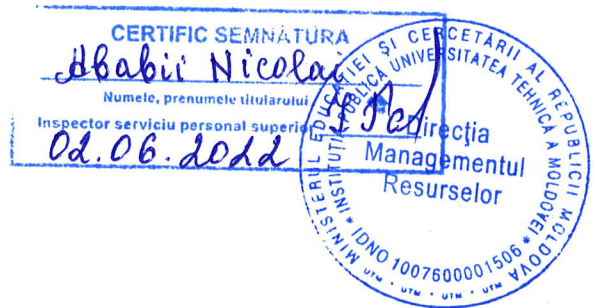 CERTIFIC SEMNĂTURA
Ababii Nicolai
Numele, prenumele titularului
Inspector serviciu personal superior
02.06.2022
MINISTERUL EDUCAȚIEI ȘI CERCETĂRII AL REPUBLICII MOLDOVA
* INSTITUȚIA PUBLICĂ UNIVERSITATEA TEHNICĂ A MOLDOVEI *
IDNO 1007600001506
Direcția
Managementul
Resurselor
UTM · UTM · UTM · UTM